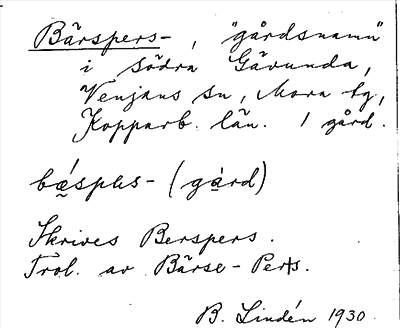 Bärspers-, "gårdsnamn"
i södra Gävunda,
Venjans sn, Mora tg,
Kopparb. län. 1 gård.
bǽspɩs- (gård)
Skrives Berspers.
Trol. av Bärse-Pers.
B. Lindén 1930.